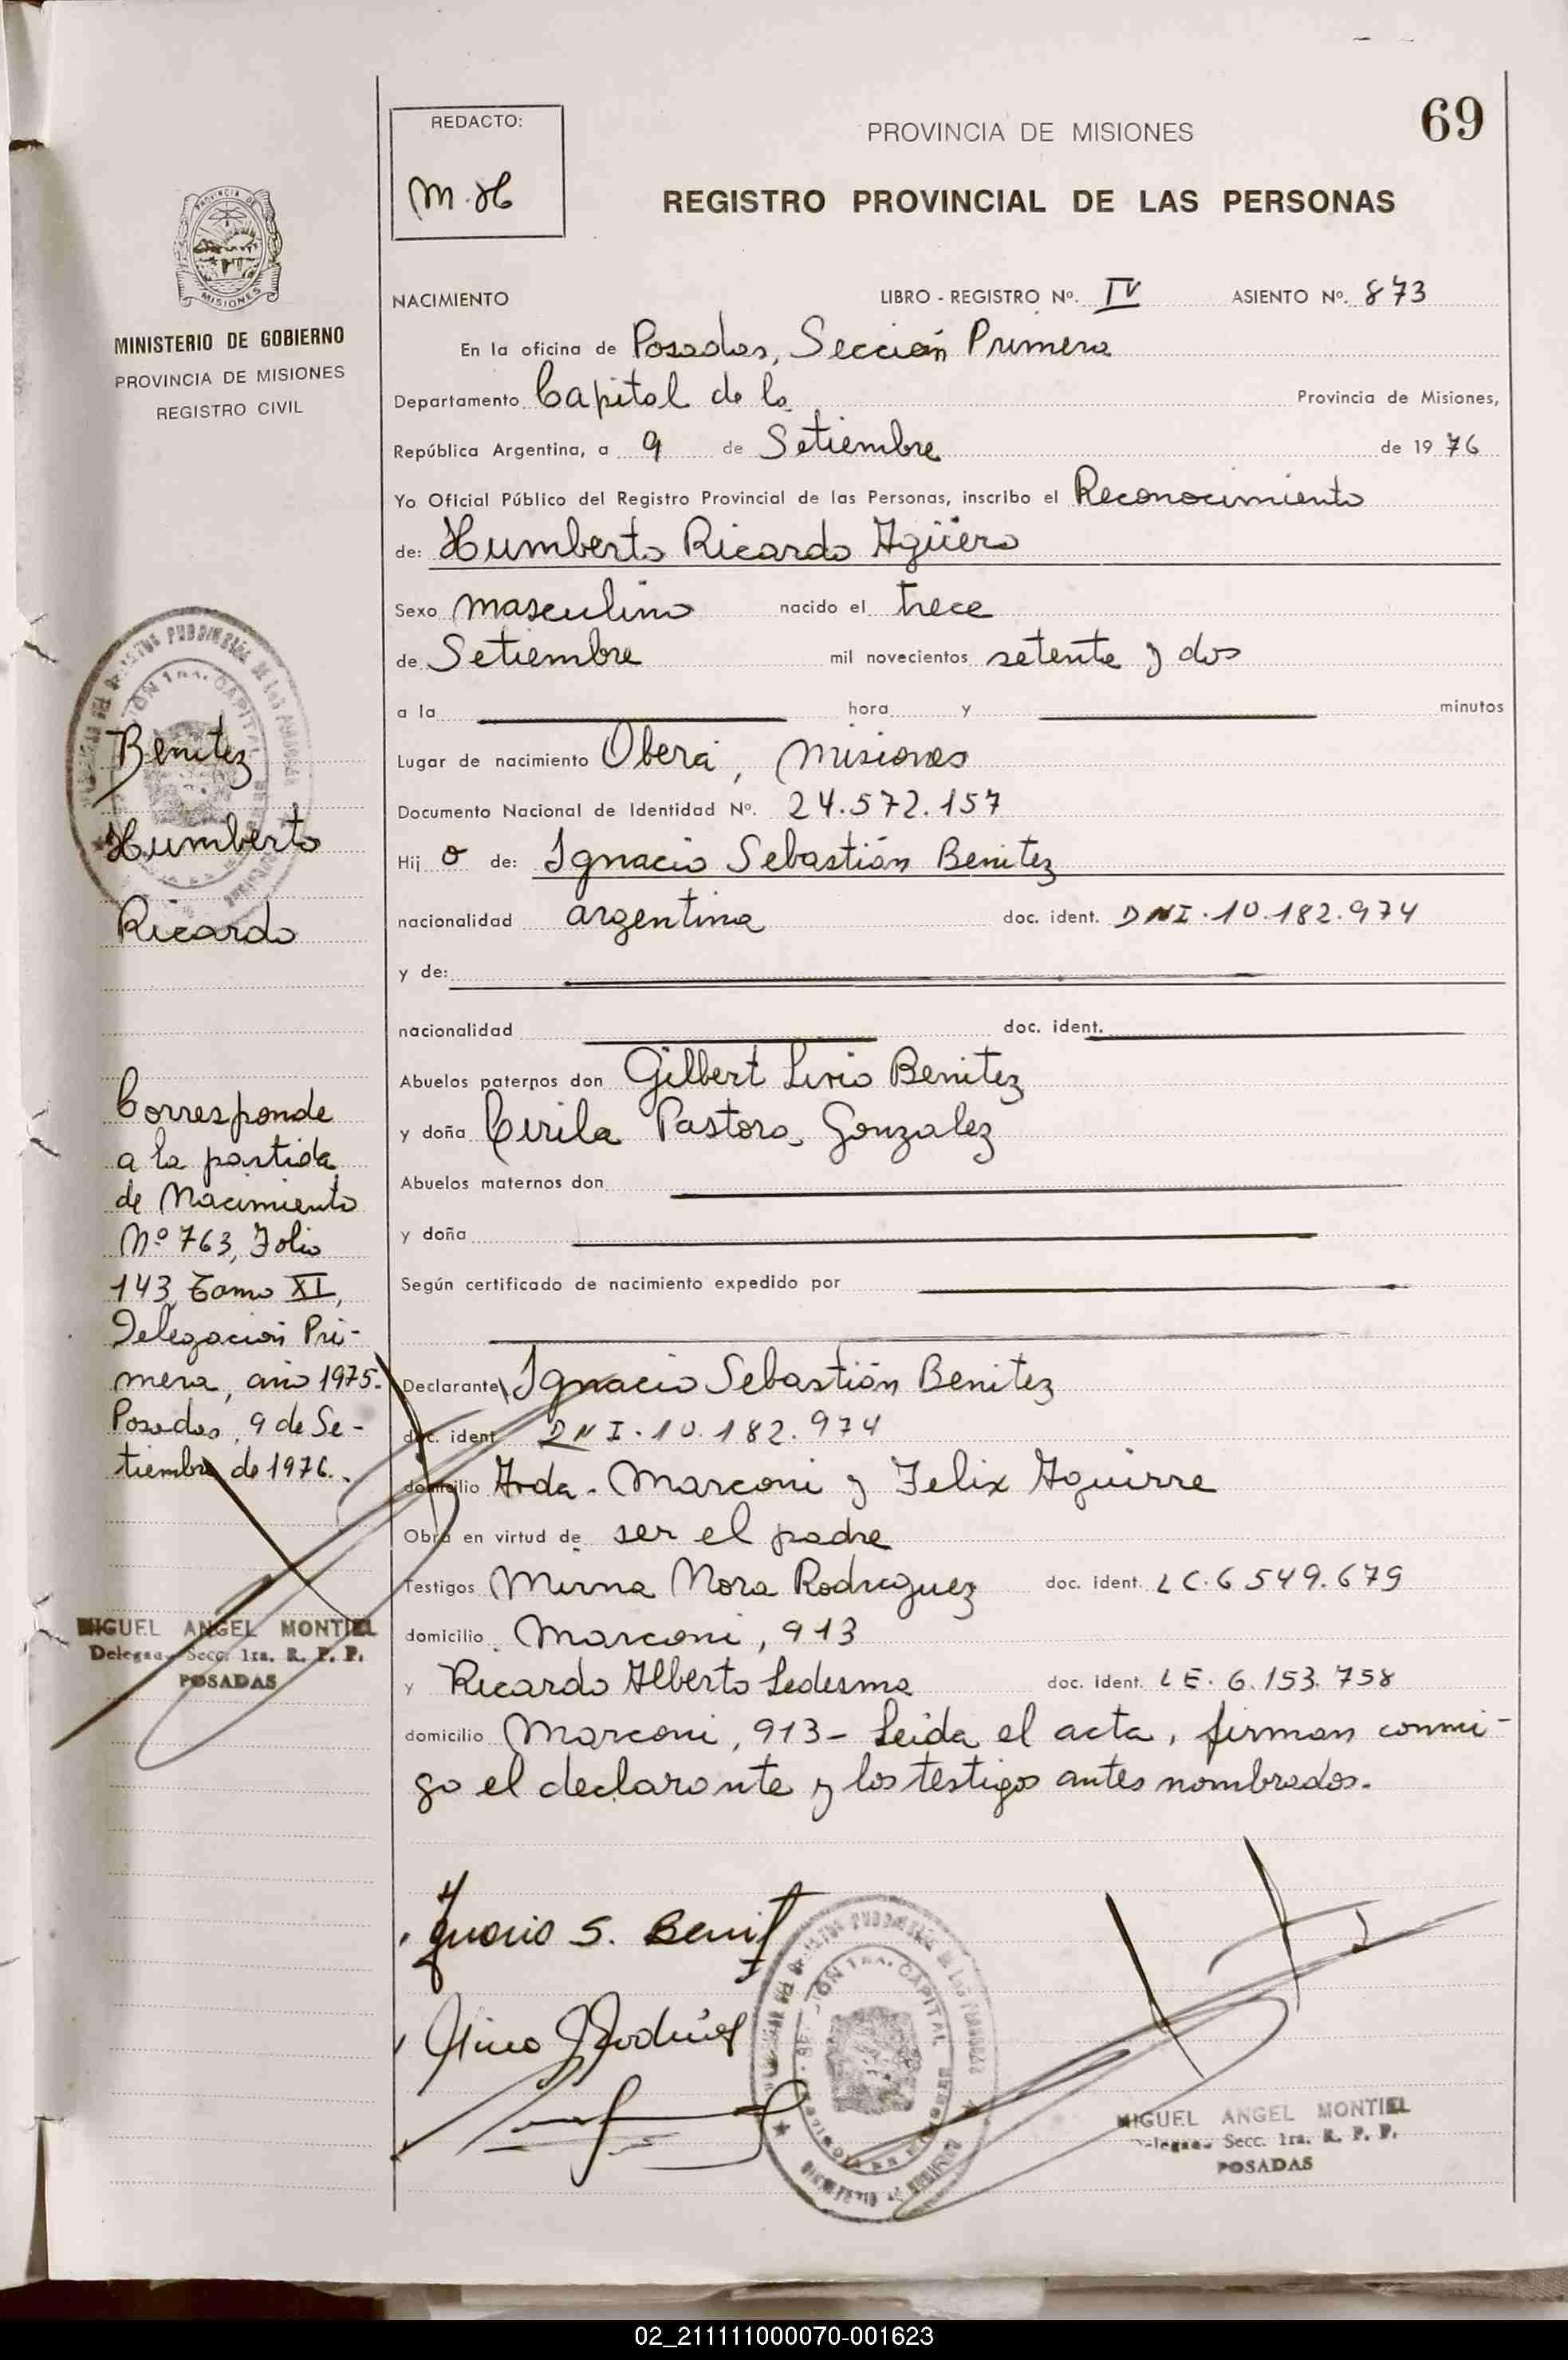 69
REDACTO:
M. H
PROVINCIA DE MISIONES
REGISTRO PROVINCIAL DE LAS PERSONAS
MISIONES
MINISTERIO DE GOBIERNO
PROVINCIA DE MISIONES
REGISTRO CIVIL
NACIMIENTO LIBRO - REGISTRO Nº. IV ASIENTO Nº. 873
En la oficina de Posadas, Sección Primera
Departamento Capital de la Provincia de Misiones,
República Argentina, a 9 de Setiembre de 1976
Yo Oficial Público del Registro Provincial de las Personas, inscribo el Reconocimiento
de: Humberto Ricardo Agüero
Sexo masculino nacido el trece
de Setiembre mil novecientos setenta y dos
a la hora y minutos
Lugar de nacimiento Oberá, Misiones
Documento Nacional de Identidad Nº. 24.572.157
Hij o de: Ignacio Sebastián Benitez
nacionalidad argentina doc. ident. DNI. 10.182.974
y de:
nacionalidad doc. ident.
Abuelos paternos don Gilbert Livio Benitez
y doña Cirila Pastora Gonzalez
Abuelos maternos don
y doña
Según certificado de nacimiento expedido por
Declarante Ignacio Sebastián Benitez
doc. ident DNI. 10.182.974
domicilio Avda. Marconi y Felix Aguirre
Obra en virtud de ser el padre
Testigos Mirna Nora Rodriguez doc. ident. LC. 6 549.679
domicilio Marconi, 913
y Ricardo Alberto Ledesma doc. ident. LE. 6.153.758
domicilio Marconi, 913- Leida el acta, firman conmi-
go el declarante y los testigos antes nombrados.
Benitez
Humberto
Ricardo
Corresponde
a la partida
de Nacimiento
Nº 763, Folio
143, Tomo XI,
Delegación Pri-
mera, año 1975.
Posadas, 9 de Se-
tiembre de 1976.
MIGUEL ANGEL MONTIEL
Delegado Secc. 1ra. R. P. P.
POSADAS
Ignacio S. Benit
MIGUEL ANGEL MONTIEL
Delegado Secc. 1ra. R. P. P.
POSADAS
02_211111000070-001623